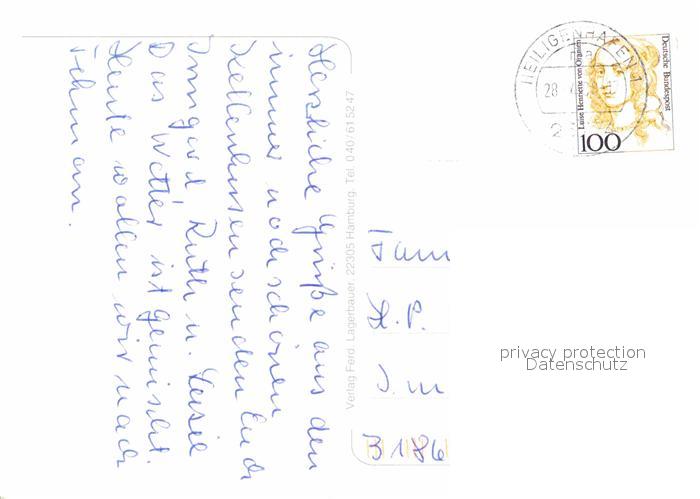 Herzliche Grüße aus den
immer noch schönen
Kellenhusen senden Euch
Irmgard, Ruth u.
Das Wetter ist gemischt.
Heute wollen wir nach
Fehmarn.
Verlag Ferd. Lagerbauer, 22305 Hamburg, Tel. 040/615247
HEILIGENHAFEN 1
28
Luise Henriette von Oranien
Deutsche Bundespost
100
Fam
H.P.
3186
privacy protection
Datenschutz